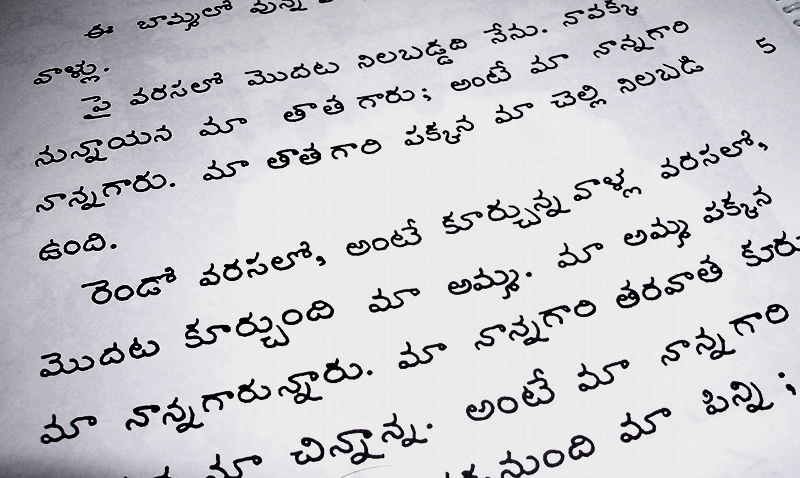 ఈ బొమ్మలో వున్న
వాళ్లు.
పై వరసలో మొదట నిలబడ్డది నేను. నాపక్క
నున్నాయన మా తాత గారు; అంటే మా నాన్నగారి 5
నాన్నగారు. మా తాత గారి పక్కన మా చెల్లి నిలబడి
ఉంది.
రెండో వరసలో, అంటే కూర్చున్న వాళ్ల వరసలో,
మొదట కూర్చుంది మా అమ్మ. మా అమ్మ పక్కన
మా నాన్నగారున్నారు. మా నాన్నగారి తరవాత
మా చిన్నాన్న. అంటే మా నాన్నగారి
మా పిన్ని ;